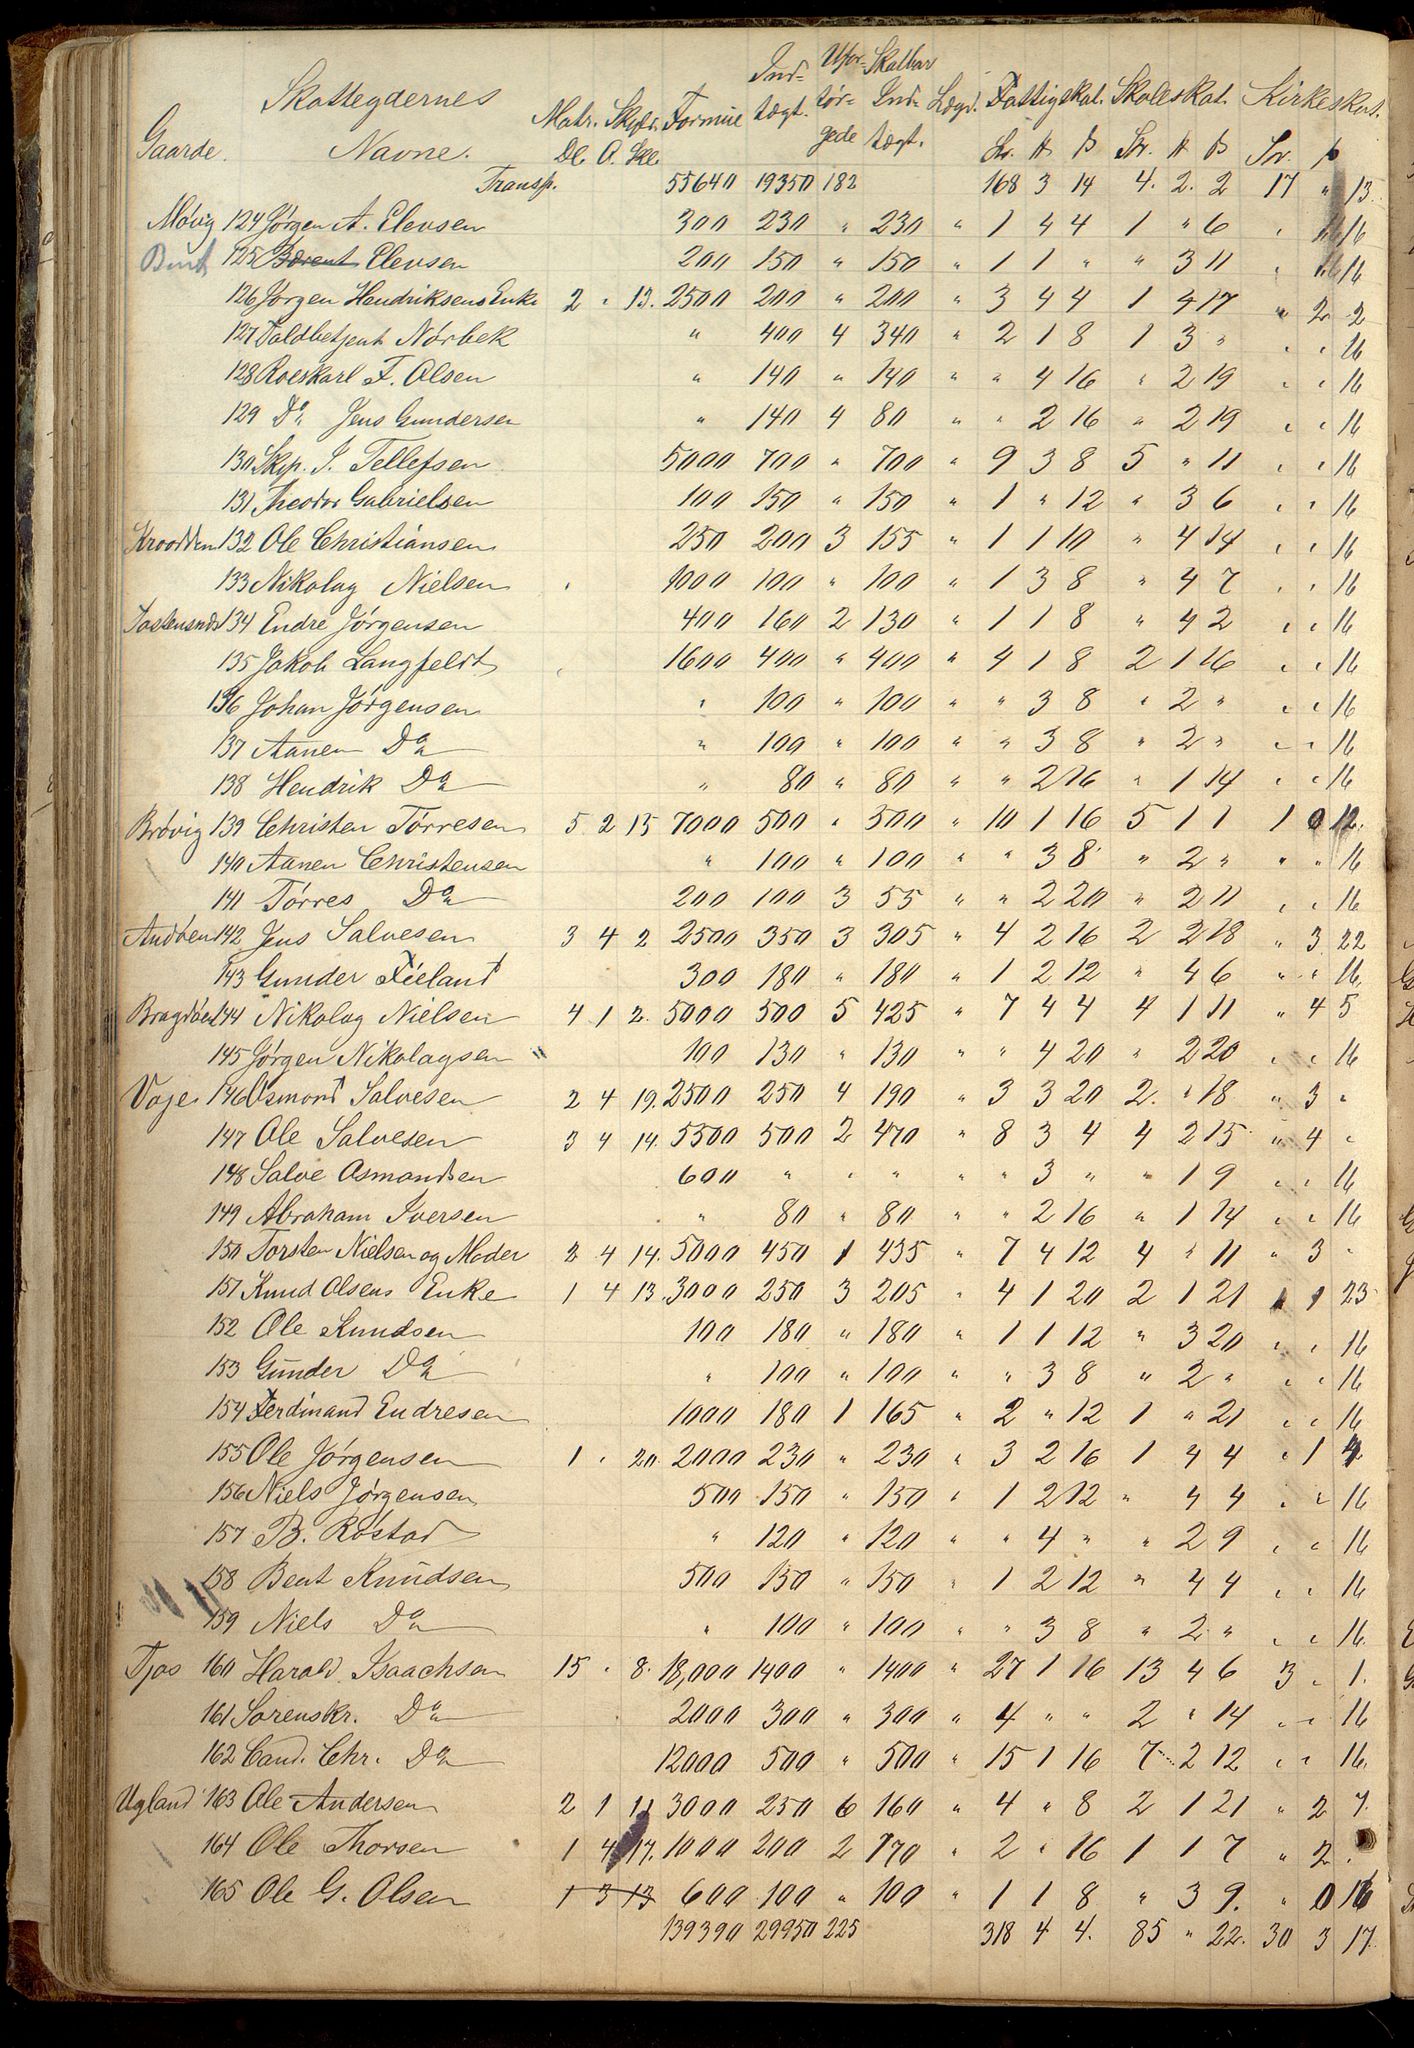 Gaarde. Skatteydernes Navne. Matr. Skyld. Dl. O. Skl. Formue Ind-tægt. Ufor-sør-gede Skatbar Ind-tægt. Lægd. Fattigskat. Skoleskat. Kirkeskat.
Transp. 55640 19350 182 168 3 14 4. 2. 2 17 " 13.
Møvig 124 Jørgen A. Elevsen 300 230 " 230 " 1 4 4 1 " 6 " " 16
Bent 125 Bærent Elevsen 200 150 " 150 " 1 1 " " 3 11 " " 16
126 Jørgen Hendriksens Enke 2 " 13. 2500 200 " 200 " 3 4 4 1 4 17 " 2 2
127 Toldbetjent Nørbek " 400 4 340 " 2 1 8 1 3 " " " 16
128 Roeskarl F. Olsen " 140 " 140 " " 4 16 " 2 19 " " 16
129 Do Jens Gundersen " 140 4 80 " " 2 16 " 2 19 " " 16
130 Skp. J. Tellefsen 5000 700 " 700 " 9 3 8 5 " 11 " " 16
131 Theodor Gabrielsen 100 150 " 150 " 1 " 12 " 3 6 " " 16
Kroodden 132 Ole Christiansen 250 200 3 155 " 1 1 10 " 4 14 " " 16
133 Nikolay Nielsen 1000 100 " 100 " 1 3 8 " 4 7 " " 16
134 Endre Jørgensen 400 160 2 130 " 1 1 8 " 4 2 " " 16
135 Jakob Langfeldt 1600 400 " 400 " 4 1 8 2 1 16 " " 16
136 Johan Jørgensen " 100 " 100 " " 3 8 " 2 " " " 16
137 Aanen Do " 100 " 100 " " 3 8 " 2 " " " 16
138 Hendrik Do " 80 " 80 " " 2 16 " 1 14 " " 16
Brøvig 139 Christen Tørresen 5 2 15 7000 500 " 500 " 10 1 16 5 1 1 1 0 12.
140 Aanen Christensen " 100 " 100 " " 3 8 " 2 " " " 16
141 Tørres Do 200 100 3 55 " " 2 20 " 2 11 " " 16
Andøen 142 Jens Salvesen 3 4 2 2500 350 3 305 " 4 2 16 2 2 18 " 3 22
143 Gunder Fieland 300 180 " 180 " 1 2 12 " 4 6 " " 16.
Bragdøen 144 Nikolay Nielsen 4 1 2. 5000 500 5 425 " 7 4 4 4 1 11 " 4 5
145 Jørgen Nikolaysen " 100 130 " 130 " " 4 20 " 2 20 " " 16
Voje 146 Osmond Salvesen 2 4 19. 2500 250 4 190 " 3 3 20 2. " 18 " 3 "
147 Ole Salvesen 3 4 14. 5500 500 2 470 " 8 3 4 4 2 15 " 4 "
148 Salve Osmondsen 600 " " " " " 3 " " 1 9 " " 16
149 Abraham Iversen " 80 " 80 " " 2 16 " 1 14 " " 16
150 Torsten Nielsen og Moder 2 4 14. 5000 450 1 435 " 7 4 12 4 " 11 " 3 "
151 Knud Olsens Enke 1 4 13. 3000 250 3 205 " 4 1 20 2 1 21 1 1 23
152 Ole Knudsen 100 180 " 180 " 1 1 12 " 3 20 " " 16
153 Gunder Do " 100 " 100 " " 3 8 " 2 " " " 16
154 Ferdinand Endresen 1000 180 1 165 " 2 " 12 1 " 21 " " 16
155 Ole Jørgensen 1 " 20. 2000 230 " 230 " 3 2 16 1 4 4 " 1 4
156 Niels Jørgensen 500 150 " 150 " 1 2 12 " 4 4 " " 16
157 B. Røstad " 120 " 120 " " 4 " " 2 9 " " 16
158 Bent Knudsen 500 150 " 150 " 1 2 12 " 4 4 " " 16
159 Niels Do " 100 " 100 " " 3 8 " 2 " " " 16.
Tjos 160 Harald Isaachsen 15 " 8. 18,000 1400 " 1400 " 27 1 16 13 4 6 3 " 1.
161 Sorenskr. Do 2000 300 " 300 " 4 " " 2 " 14 " " 16
162 Cand. Chr. Do 12000 500 " 500 " 15 1 16 7 2 12 " " 16.
Ugland 163 Ole Andersen 2 1 11 3000 250 6 160 " 4 " 8 2 1 21 " 2 7.
164 Ole Thorsen 1 4 17. 1000 200 2 170 " 2 " 16 1 1 7 " 2 "
165 Ole G. Olsen 1 3 13 600 100 " 100 " 1 1 8 " 3 9. " 0 16
139390 29950 225 318 4 4. 85 " 22. 30 3 17.